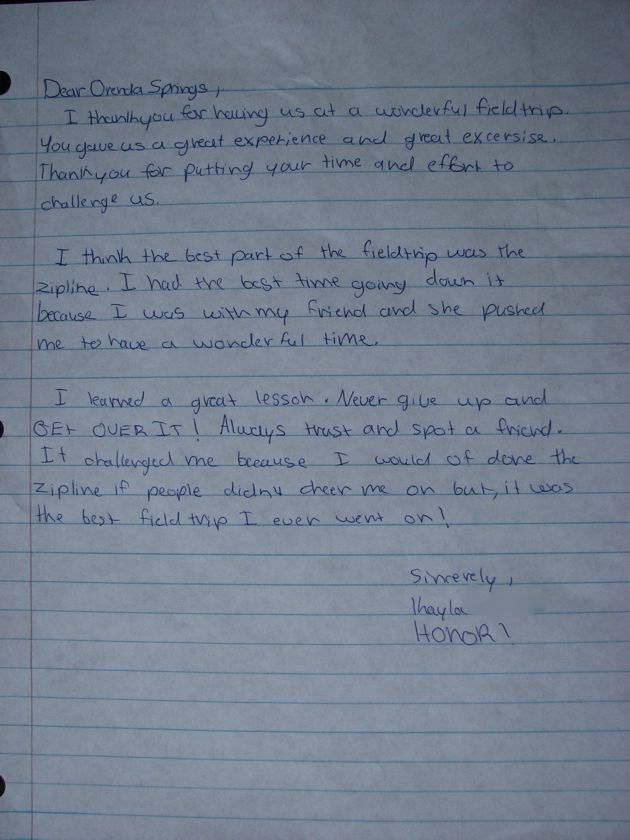 Dear Orenda Springs,
I thankyou for having us at a wonderful fieldtrip.
You gave us a great experience and great excersise.
Thankyou for putting your time and effort to
challenge us.
I think the best part of the fieldtrip was the
zipline. I had the best time going down it
because I was with my friend and she pushed
me to have a wonderful time.
I learned a great lesson. Never give up and
GET OVER IT! Always trust and spot a friend.
It challenged me because I would of done the
zipline if people didnt cheer me on but, it was
the best field trip I ever went on!
Sincerely,
Khayla
HONOR!